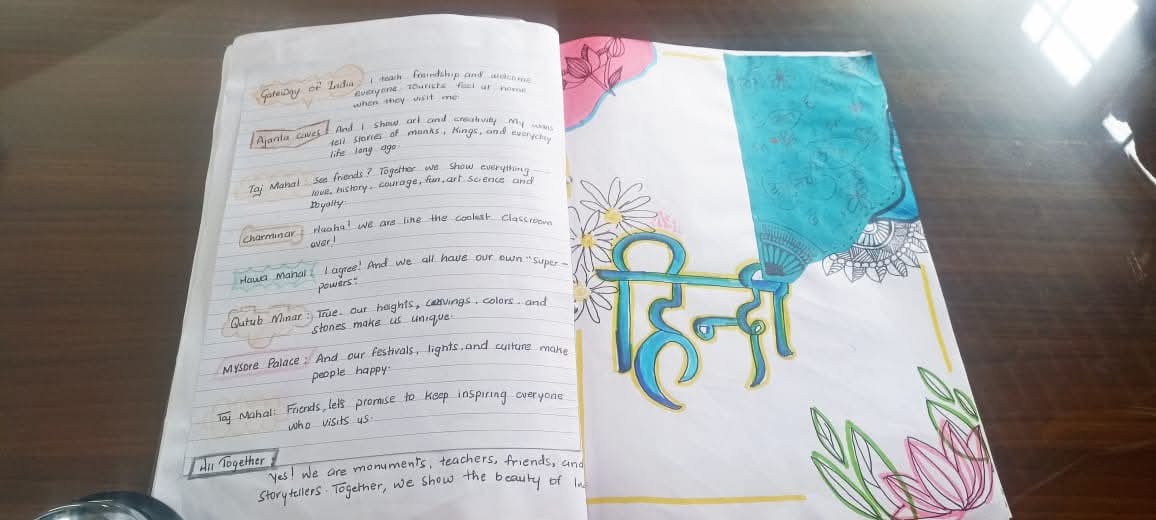 Gateway of India
I teach friendship and welcome
everyone. Tourists feel at home
when they visit me.
Ajanta caves: And I show art and creativity. My walls
tell stories of monks, Kings, and everyday
life long ago.
Taj Mahal: See friends? Together we show everything
love, history, courage, fun, art science and
loyalty.
Charminar: Haaha! we are like the coolest classroom
ever!
Hawa Mahal: I agree! And we all have our own "Super-
powers".
Qutub Minar: True. our heights, carvings, colors, and
stones make us unique.
Mysore Palace: And our festivals, lights, and culture make
people happy.
Taj Mahal: Friends, let's promise to keep inspiring everyone
who visits us.
All Together:
Yes! We are monuments, teachers, friends, and
storytellers. Together, we show the beauty of In
हिन्दी